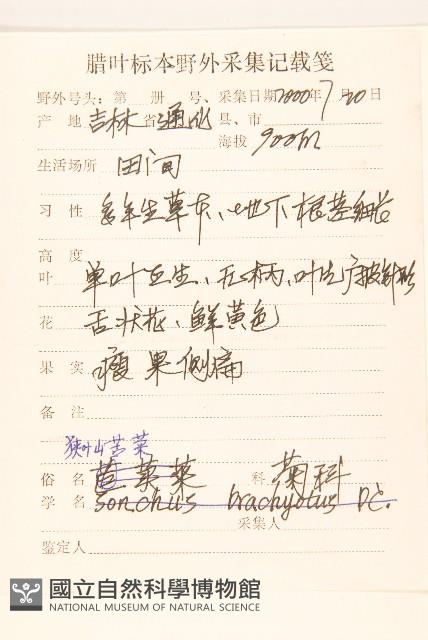 腊叶标本野外采集记载笺
野外号头：第 册 号、采集日期2000年7月20日
产 地 吉林省通化县、市
海拔 900m
生活场所 田间
习 性 多年生草本、地下根茎细长
高 度
叶 单叶互生、无柄、叶片广披针形
花 舌状花、鲜黄色
果 实 瘦果侧扁
备 注
狭叶山苦菜
俗 名 苣荬菜 科 菊科
学 名 Sonchus brachyotus DC.
采集人
鉴定人
國立自然科學博物館
NATIONAL MUSEUM OF NATURAL SCIENCE